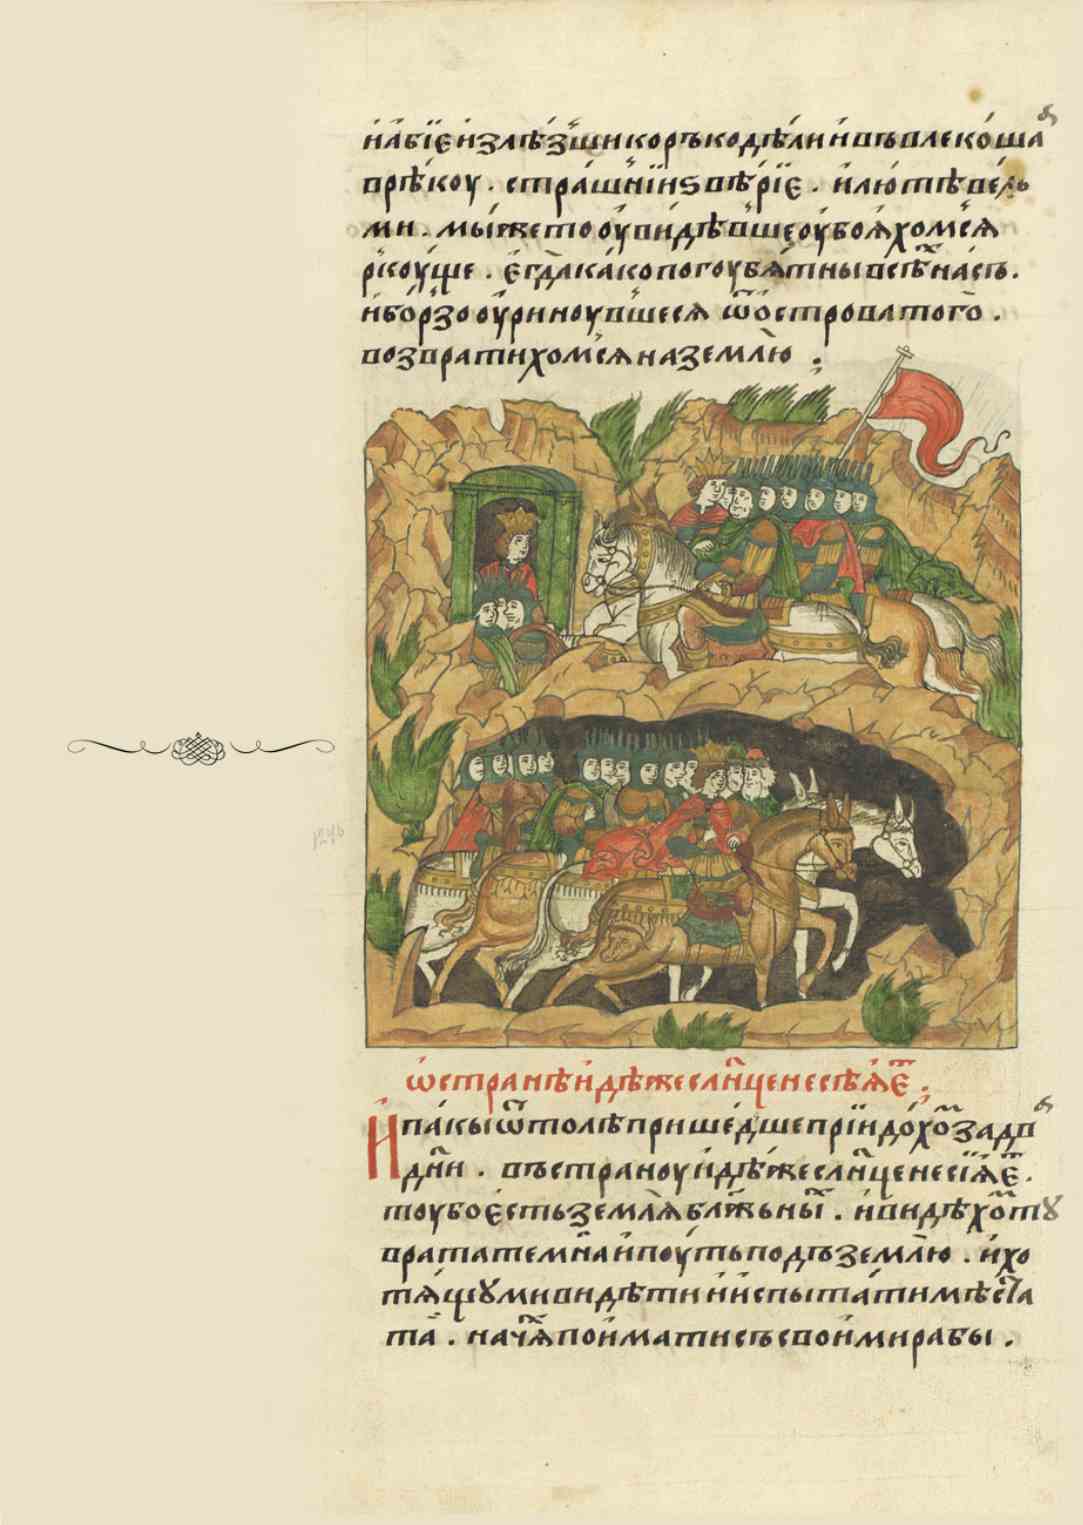 и҆а́бїе и҆злѣ́зши ис коръкодѣ́ли и҆ въвлеко́ша а҆
в рѣ́коу . стра́шнїи ѕвѣ́рїе . и҆ лю́тѣ ве́ль
ми . мы́ же то оу҆видѣ́вше оу҆боя́хомсѧ
ркоу́ще . є҆гда̀ ка́ко погоубѧ́т ны всѣ́х на́съ .
и҆ бо́рзо оу҆ри́ноувшесѧ ѿ о҆́строва того̀ .
возврати́хомсѧ на зе́млю .
ѡ҆ странѣ̀ и҆дѣ́же сл҃нце не сѣѧ́ет .
И҆ па́кы ѿто́лѣ прише́дше прїидо́хом за два̀
дн҃и . въ страноу̀ и҆дѣ́же сл҃нце не сїѧ́ет .
тоу̀ бо є҆́сть землѧ̀ бл҃же́ных . и҆ ви́дѣхом тꙋ
врата̀ те́мна и҆ поу́ть под зе́млю . и҆ хо
тѧ́щꙋ ми ви́дѣти и҆ и҆спыта́ти мѣ́ста
та̀ . нача́х пои҆ма́ти съ свои́ми рабы̀ .